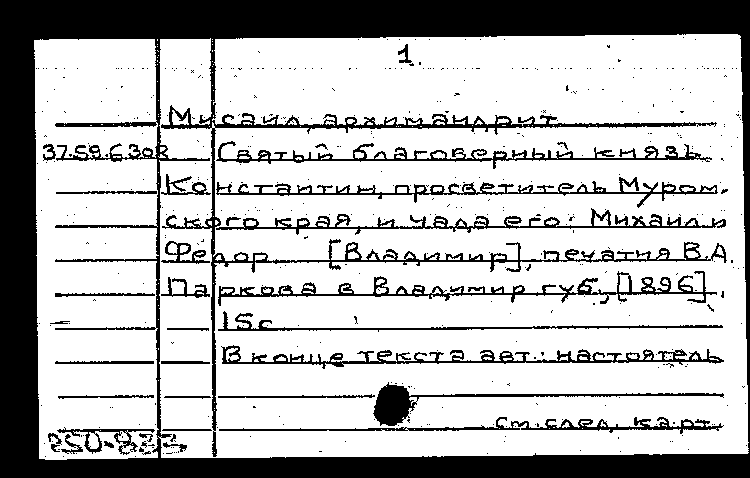 1.
Мисаил, архимандрит
37.59.6.308 Святый благоверный князь
Константин, просветитель Муром-
ского края, и чада его: Михаил и
Федор [Владимир], печатня В.А.
Паркова в Владимир губ., [1896].
15с
В конце текста авт.: настоятель
см. след. карт.
250-833